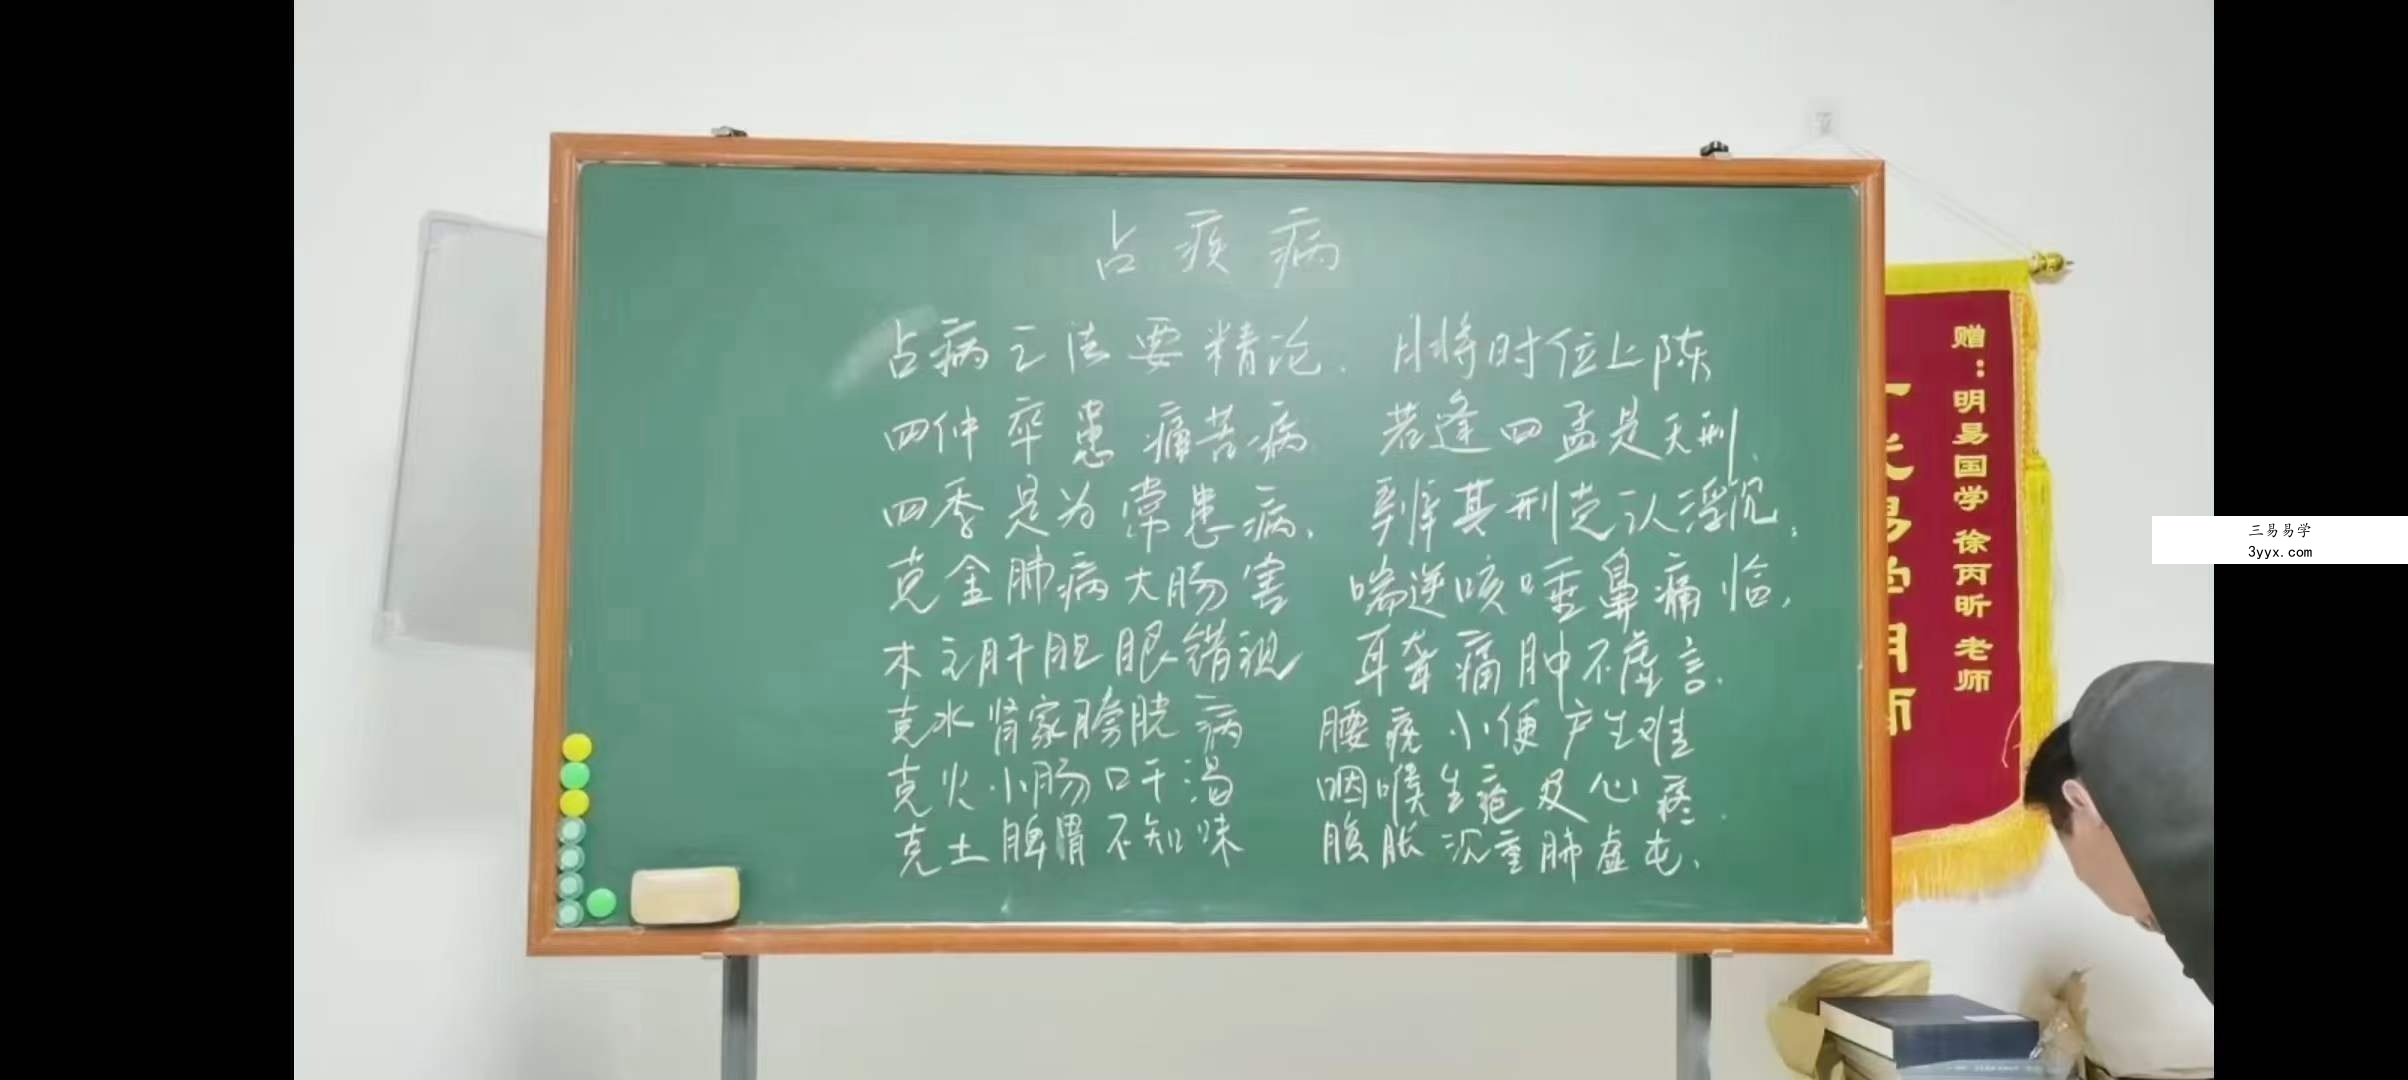 占疾病
占病之法要精论. 月将时位上陈
四仲卒患痛苦病 若逢四孟是天刑.
四季是为常患病, 辨其刑克认浮沉;
克金肺病大肠害 喘逆咳唾鼻痛临,
木之肝胆眼错视 耳聋痛肿不虚言.
克水肾家膀胱病 腰疣小便产生难
克火小肠口干渴 咽喉生疮及心疼.
克土脾胃不知味 腹胀沉重肺虚屯,
赠：明易国学 徐丙昕 老师
三易易学
3yyx.com